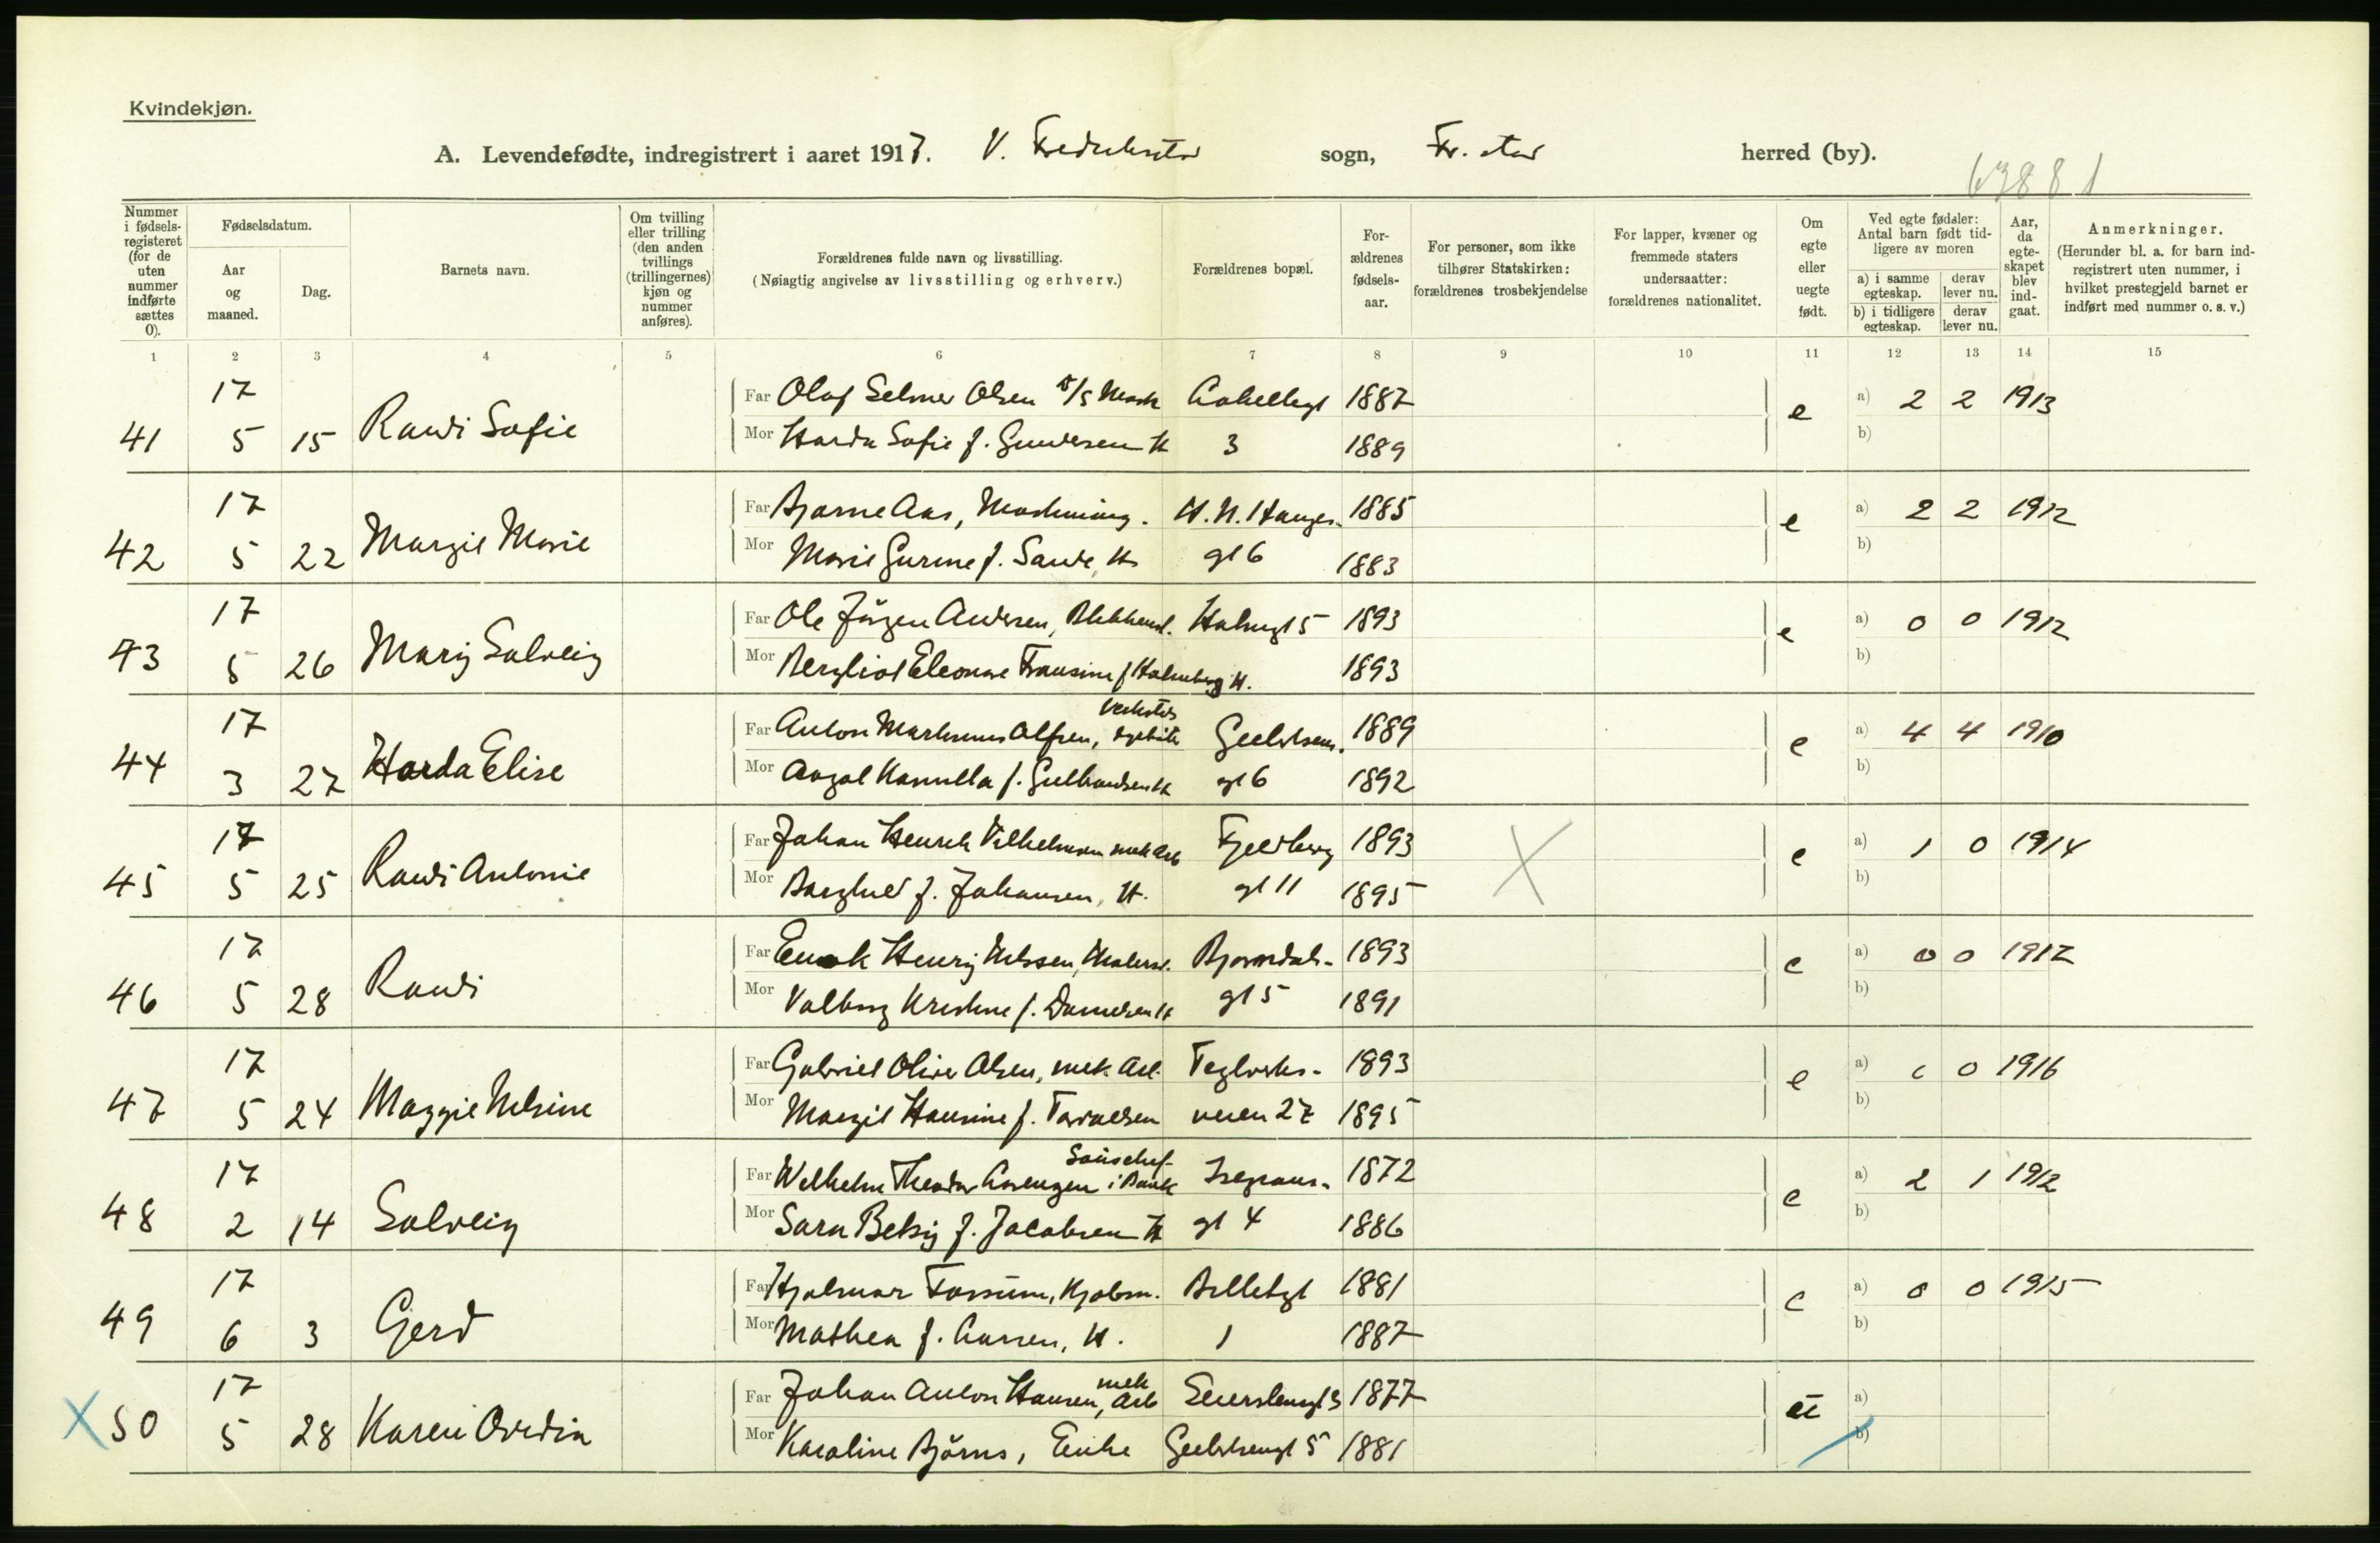 Kvindekjøn.
A. Levendefødte, indregistrert i aaret 1917. V. Fredrikstad sogn, Fr.stad herred (by).
63881
Nummer i fødselsregisteret (for de uten nummer indførte sættes 0).
Fødselsdatum.
Aar og maaned.
Dag.
Barnets navn.
Om tvilling eller trilling (den anden tvillings (trillingernes) kjøn og nummer anføres).
Forældrenes fulde navn og livsstilling.
(Nøiagtig angivelse av livsstilling og erhverv.)
Forældrenes bopæl.
For-ældrenes fødsels-aar.
For personer, som ikke tilhører Statskirken: forældrenes trosbekjendelse
For lapper, kvæner og fremmede staters undersaatter: forældrenes nationalitet.
Om egte eller uegte født.
Ved egte fødsler: Antal barn født tid-ligere av moren
a) i samme egteskap.
derav lever nu.
b) i tidligere egteskap.
derav lever nu.
Aar, da egte-skapet blev ind-gaat.
Anmerkninger.
(Herunder bl. a. for barn ind-registrert uten nummer, i hvilket prestegjeld barnet er indført med nummer o. s. v.)
1 2 3 4 5 6 7 8 9 10 11 12 13 14 15
17 Far Olaf Selmer Olsen 1887 a) 2 2 1913
41 5 15 Randi Sofie Mor Harda Sofie f. Gundersen H 3 1889 e b)
17 Far Bjarne Aas, H. N. Hauges- 1885 a) 2 2 1912
42 5 22 Margit Marie Mor Marie Gurine f. Sande, H gt 6 1883 e b)
17 Far Ole Jörgen Andersen, 1893 a) 0 0 1912
43 5 26 Mary Solveig Mor Bergliot Eleonore Fransine f Holmberg H. 1893 e b)
Verksteds
17 Far Anton Marhinus Alfsen, 1889 a) 4 4 1910
44 3 27 Harda Elise Mor Aagot Kamilla f. Gulbrandsen H gt 6 1892 e b)
17 Far Johan Henrik Vilhelmsen mek Arb Fjeldberg 1893 a) 1 0 1914
45 5 25 Randi Antonie Mor Borghild f. Johansen, H. gt 11 1895 e b)
17 Far Enok Henry Nilssen, Malersv. Bjørndals- 1893 a) 0 0 1917
46 5 28 Randi Mor Valborg Kristine f. Danielsen H gt 5 1891 e b)
17 Far Gabriel Oliver Olsen, mek Arb. Teglverks- 1893 a) 0 0 1916
47 5 24 Maggie Nilsine Mor Margit Hansine f. Torvaldsen veien 27 1895 e b)
17 Far Wilhelm Theodor i Bank 1872 a) 2 1 1912
48 2 14 Solveig Mor Sara Betsy f. Jacobsen H gt 4 1886 e b)
17 Far Hjalmar Fossum, Kjøbm. Billetgt 1881 a) 0 0 1915
49 6 3 Gerd Mor Mathea f. Aasen, H. 1 1887 e b)
mek
17 Far Johan Anton Hansen, Arb Seierstensgt 3 1877 a)
X 50 5 28 Karen Ovidia Mor Karoline Björns, Enke 5 1881 b)